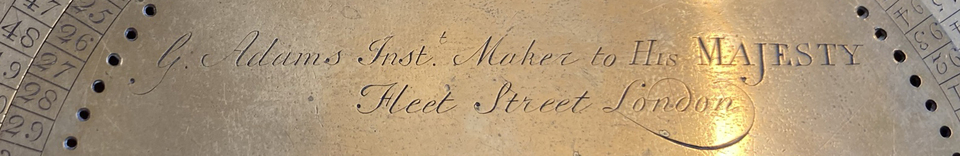 G. Adams Inst.t Maker to His MAJESTY
Fleet Street London
47 25
48 26
27
28
29